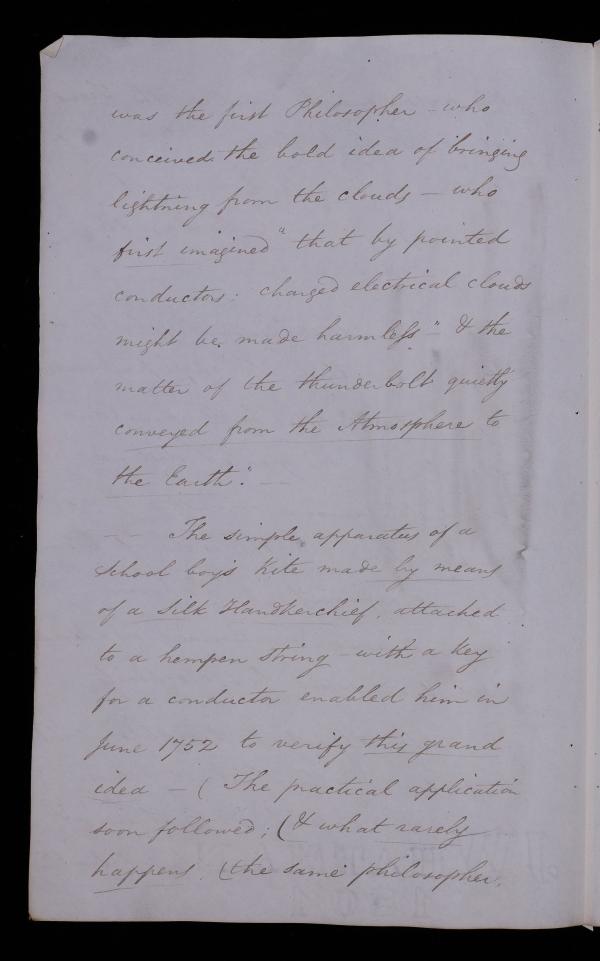 was the first Philosopher - who
conceived the bold idea of bringing
lightning from the clouds - who
first imagined "that by pointed
conductors: charged electrical clouds
might be made harmless" & the
matter of the thunderbolt quietly
conveyed from the Atmosphere to
the Earth". -
-- The simple apparatus of a
School boy's Kite made by means
of a Silk Handkerchief, attached
to a hempen string - with a Key
for a conductor enabled him in
June 1752 to verify this grand
idea - ( The practical application
soon followed; (& what rarely
happens, (the same philosopher,